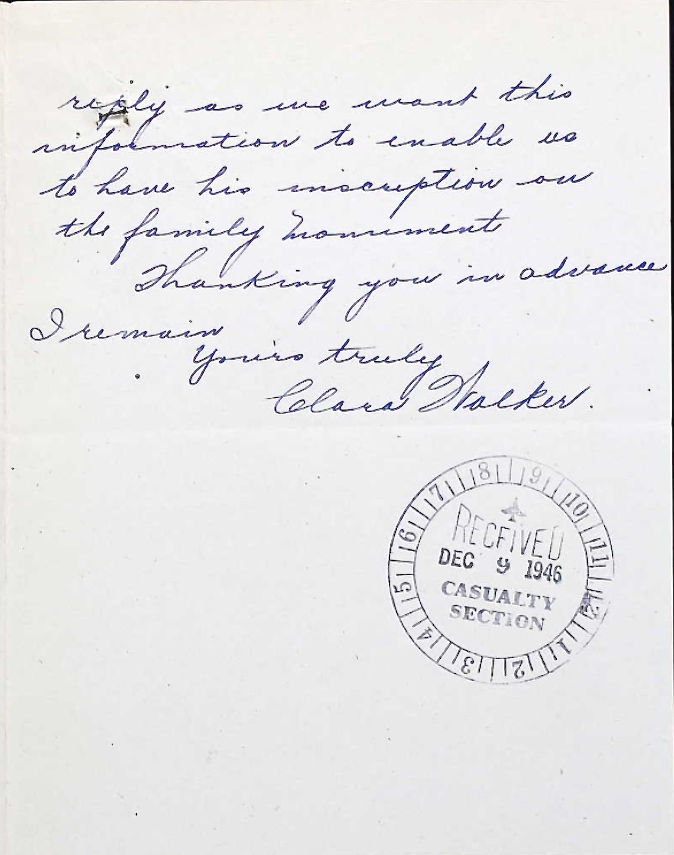 reply as we want this
information to enable us
to have his inscription on
the family Monument
Thanking you in advance
I remain
Yours truly
Clara Walker.
7 8 9 10 11 12 1 2 3 4 5 6
RECEIVED
DEC 9 1946
CASUALTY
SECTION